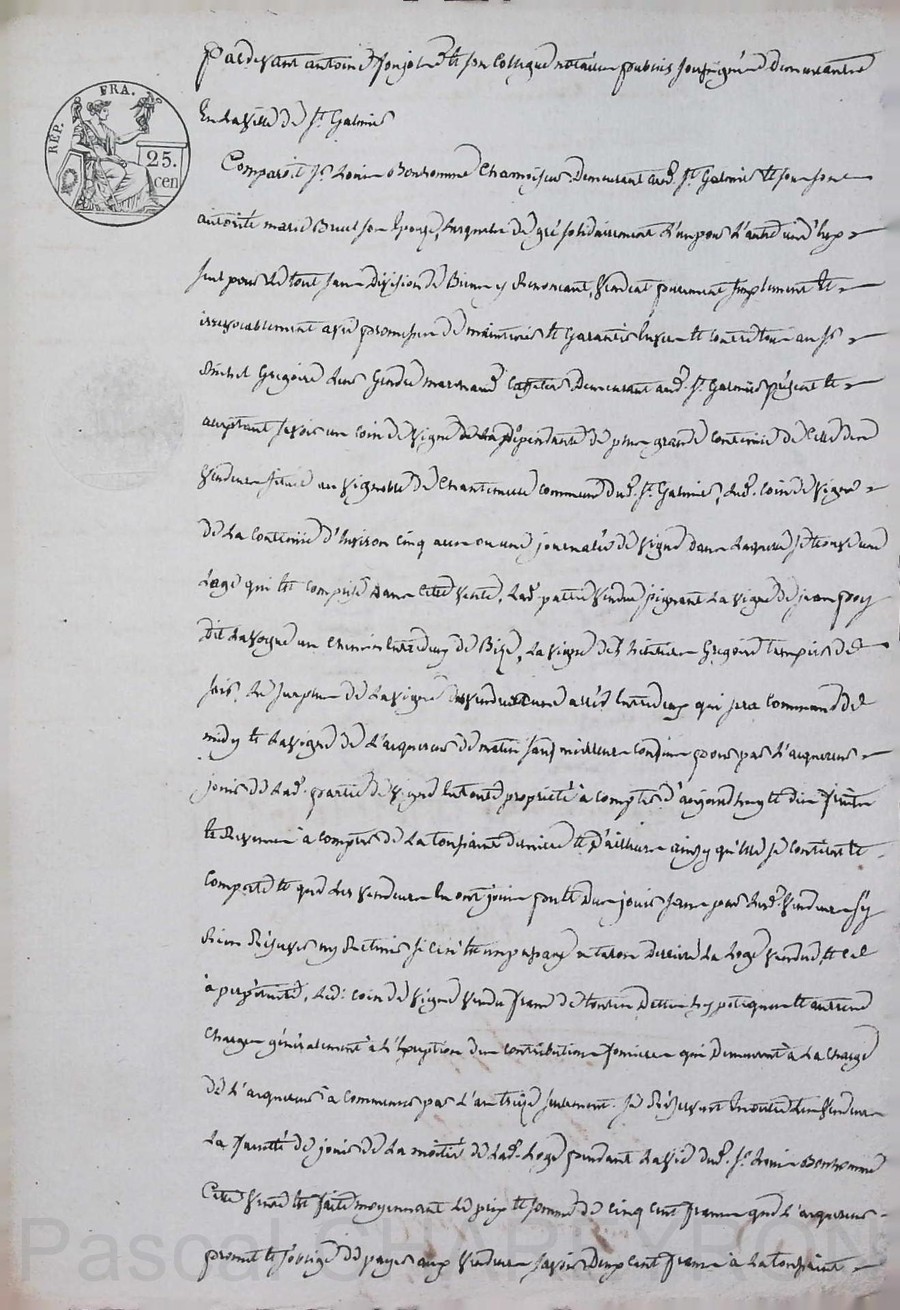 RÉP. FRA.
25.
cen
Pardevant antoine et son Collegue notaires publics soussignés Demeurants
En la ville de St. Galmier
Comparoit Sr. Louis Bonhomme Chamoiseur Demeurant aud. St. Galmier et sous son
autorité marie son Epouse, lesquels de gré solidairement l'un pour l'autre un d'eux
seul pour le tout sans Division de Biens y Renonçant, Vendent purement simplement et
irrevocablement avec promesse de maintenir et Garantir envers et contre tous au Sr
Gregoire Gendre marchand Demeurant aud. St. Galmier présent et
acceptant savoir un coin de vigne de la Dépendante de plus grande Contenue de Celle des
Vendeurs situé au vignoble de commune dud. St. Galmier, led. coin de vigne
de la Contenue d'Environ cinq ares ou une journalée de vigne dans laquelle se trouve une
Loge qui est comprise dans cette vente, lad. partie vendue joignant la vigne de jean
dit un Chemin Entredeux de Bize, la vigne des héritiers Gregoire de
soir, le surplus de la vigne des vendeurs Entredeux qui sera Commune de
midy et la vigne de l'acquereur de matin sauf meilleurs Confins pour par l'acquereur
jouir de lad. partie de vigne En toute propriété à compter d'aujourd'huy et des fruits
et Revenus à compter de la toussaint derniere et d'ailleurs ainsy qu'elle se Contient et
Comporte et que les vendeurs En ont joui ou du jouir sans par lesd. Vendeurs s'y
Rien Réserver ny Retenir si ce n'est un passage derriere la Loge vendue, et cel
à perpétuité, led. coin de vigne vendu franc de toutes Dettes hypotheques et autres
Charges généralement à l'Exception des contributions foncieres qui Demeurent à la Charge
de l'acquereur à Commencer par l'an treize seulement. Se Réservent Encore les Vendeurs
la faculté de jouir de la moitié de lad. Loge pendant la vie dud. Sr. Louis Bonhomme
Cette vente est faite moyennant le prix et somme de cinq cent francs que l'acquereur
promet et s'oblige de payer aux vendeurs savoir Deux cent francs à la toussaint
Pascal CHARLEYRON